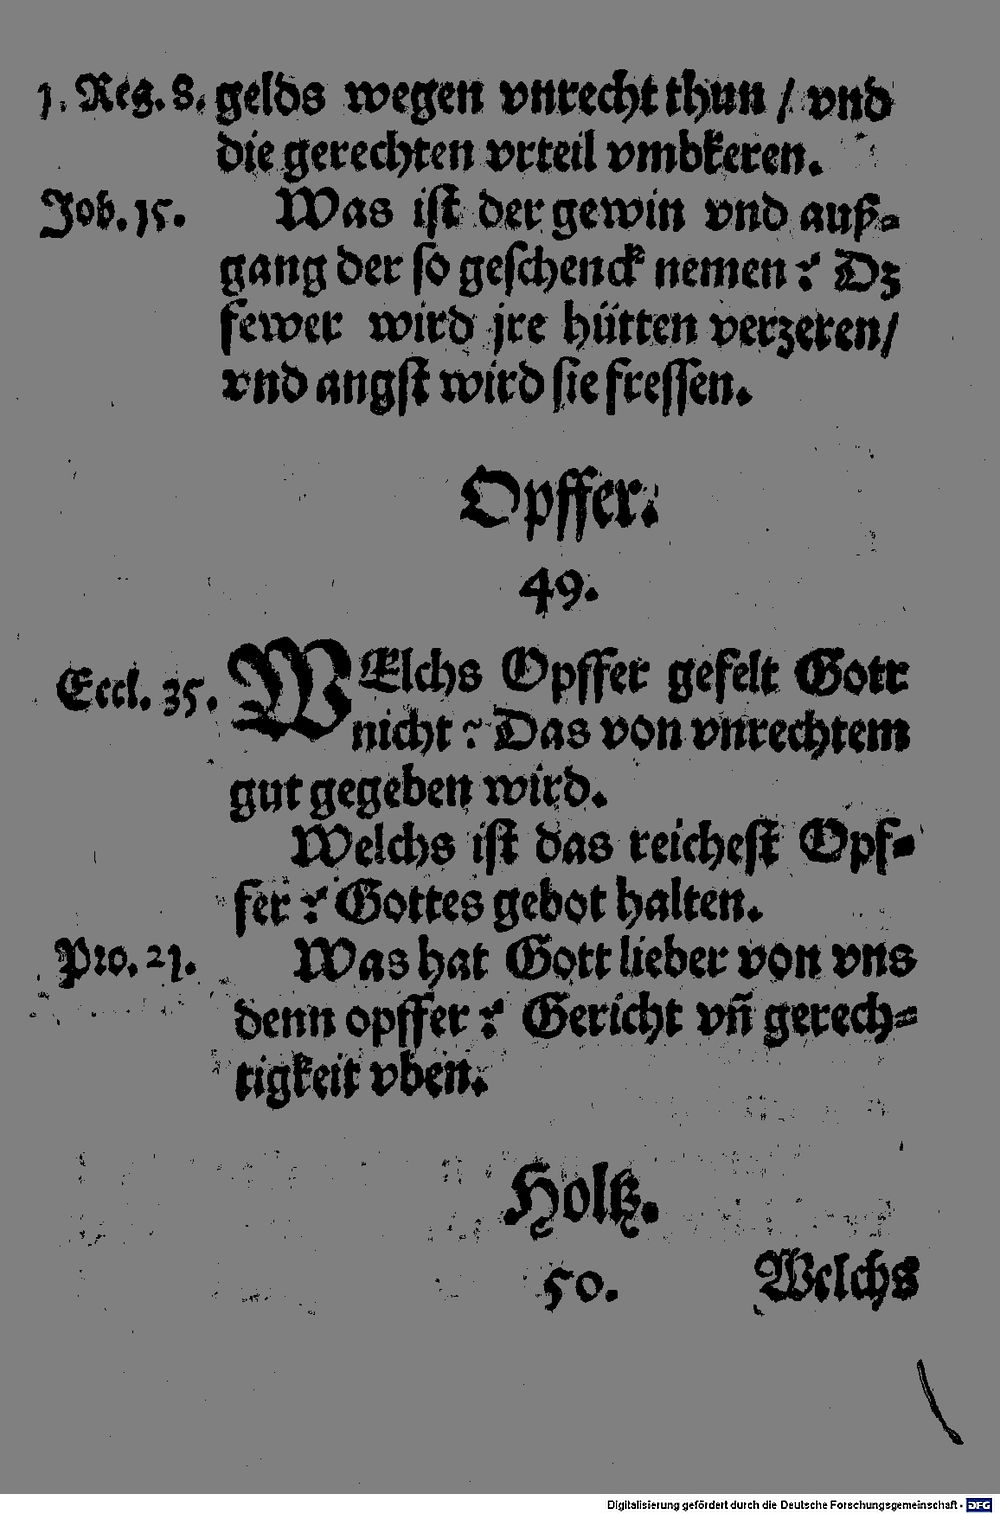 1. Reg. 8. gelds wegen vnrecht thun / vnd
die gerechten vrteil vmbkeren.
Job. 15. Was ist der gewin vnd auß-
gang der so geschenck nemen? Dz
fewer wird jre hütten verzeren/
vnd angst wird sie fressen.
Opffer.
49.
Eccl. 35. WElchs Opffer gefelt Gott
nicht? Das von vnrechtem
gut gegeben wird.
Welchs ist das reichest Opf-
fer? Gottes gebot halten.
Pro. 21. Was hat Gott lieber von vns
denn opffer? Gericht vñ gerech-
tigkeit vben.
Holtz.
50. Welchs
Digitalisierung gefördert durch die Deutsche Forschungsgemeinschaft - DFG